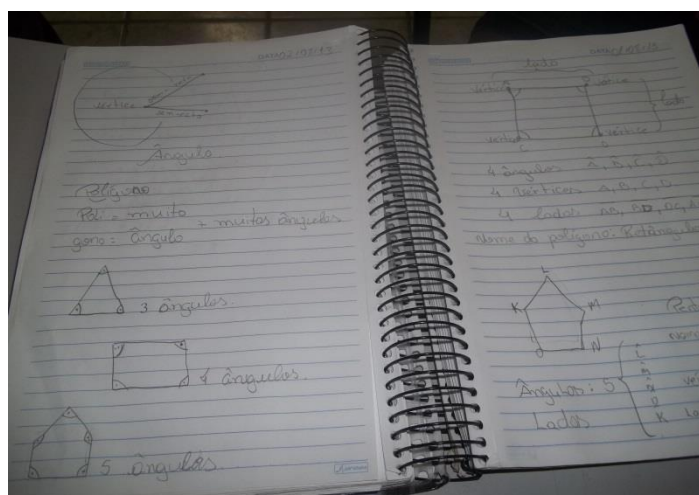 02/08/13
vértice
Ângulo
Polígono
Poli = muito
gono: ângulo
= muitos ângulos
3 ângulos.
4 ângulos.
5 ângulos.
lado
vértice
vértice
lado
vértice
vértice
4 ângulos A, B, C, D
4 vértices A, B, C, D
4 lados AB, BD, DC,
Nome do polígono: Retângulo
L
K
M
O
N
Ângulos: 5
L
M
N
O
K
Lados